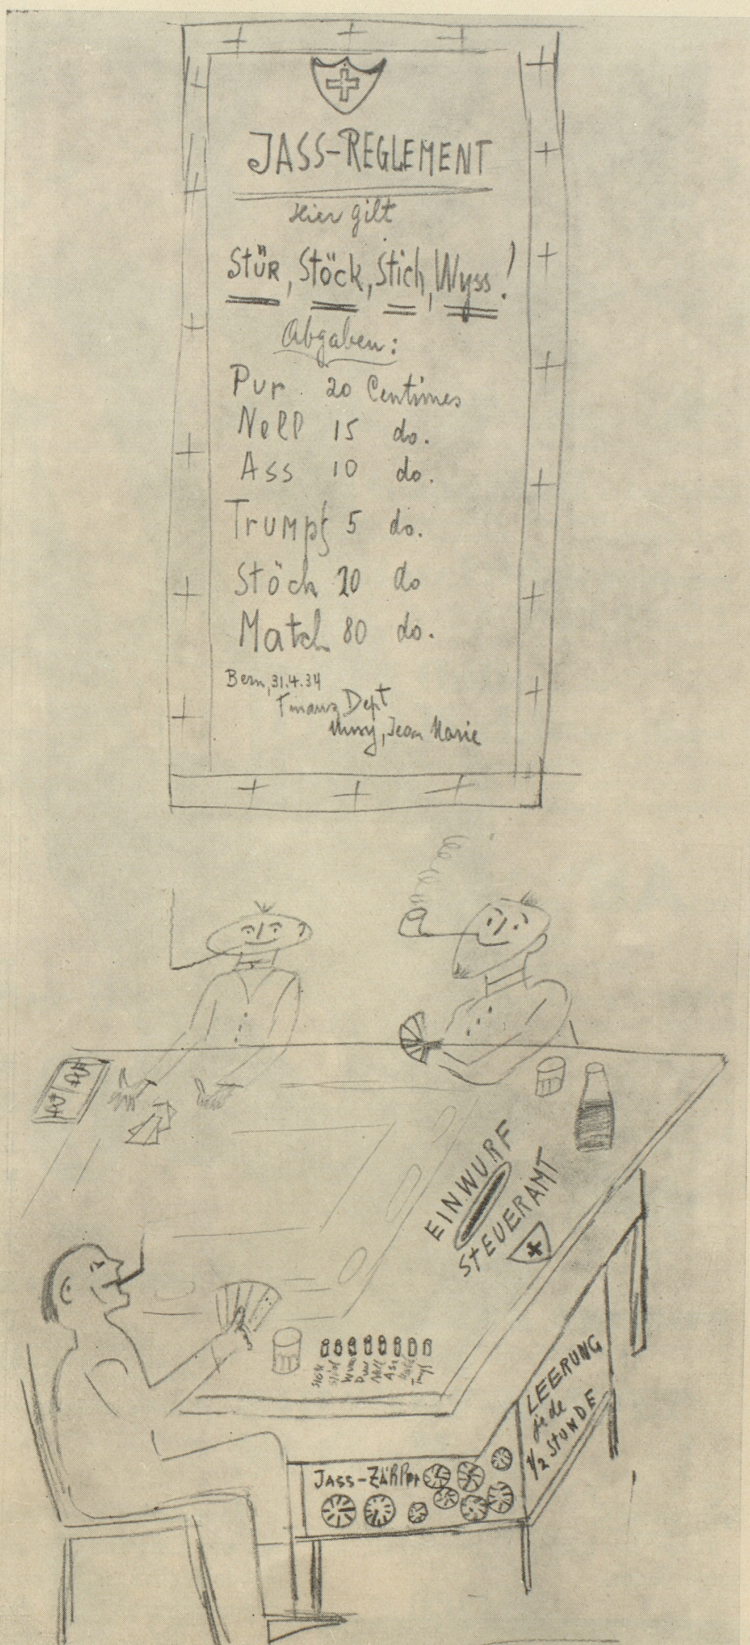 JASS-REGLEMENT
Hier gilt
Stür, Stöck, Stich, Wyss!
Abgaben:
Pur 20 Centimes
Nell 15 do.
Ass 10 do.
Trumpf 5 do.
Stöck 20 do
Match 80 do.
Bern, 31.4.34
Finanz Dept
Musy, Jean Marie
EINWURF
STEUERAMT
LEERUNG
jede
1/2 STUNDE
JASS-ZÄHLER